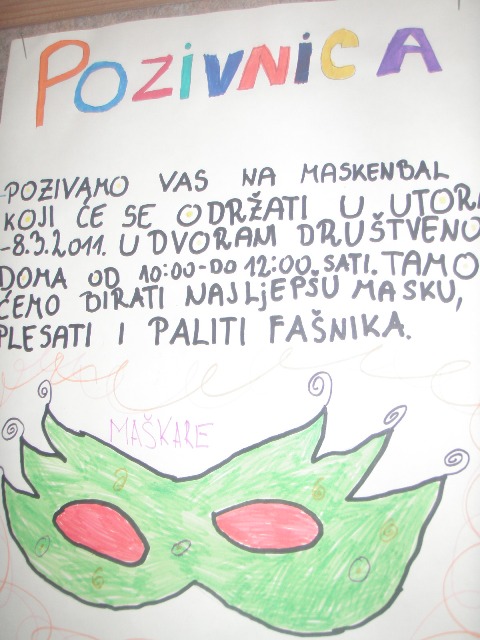 POZIVNICA
-POZIVAMO VAS NA MASKENBAL
KOJI ĆE SE ODRŽATI U UTOR
-8.3.2011. U DVORAM DRUŠTVENO
DOMA OD 10:00-DO 12:00. SATI. TAMO
ĆEMO BIRATI NAJLJEPŠU MASKU,
PLESATI I PALITI FAŠNIKA.
MAŠKARE